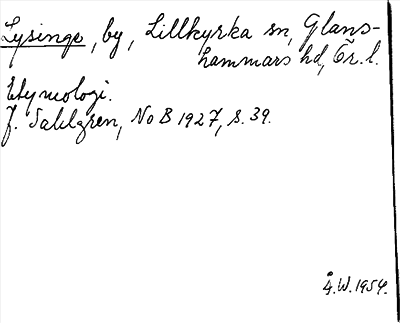 Lysinge, by, Lillkyrka sn, Glans-
hammars hd, Ör. l.
Etymologi.
J. Sahlgren, NoB 1927, s. 39.
Å.W. 1954.